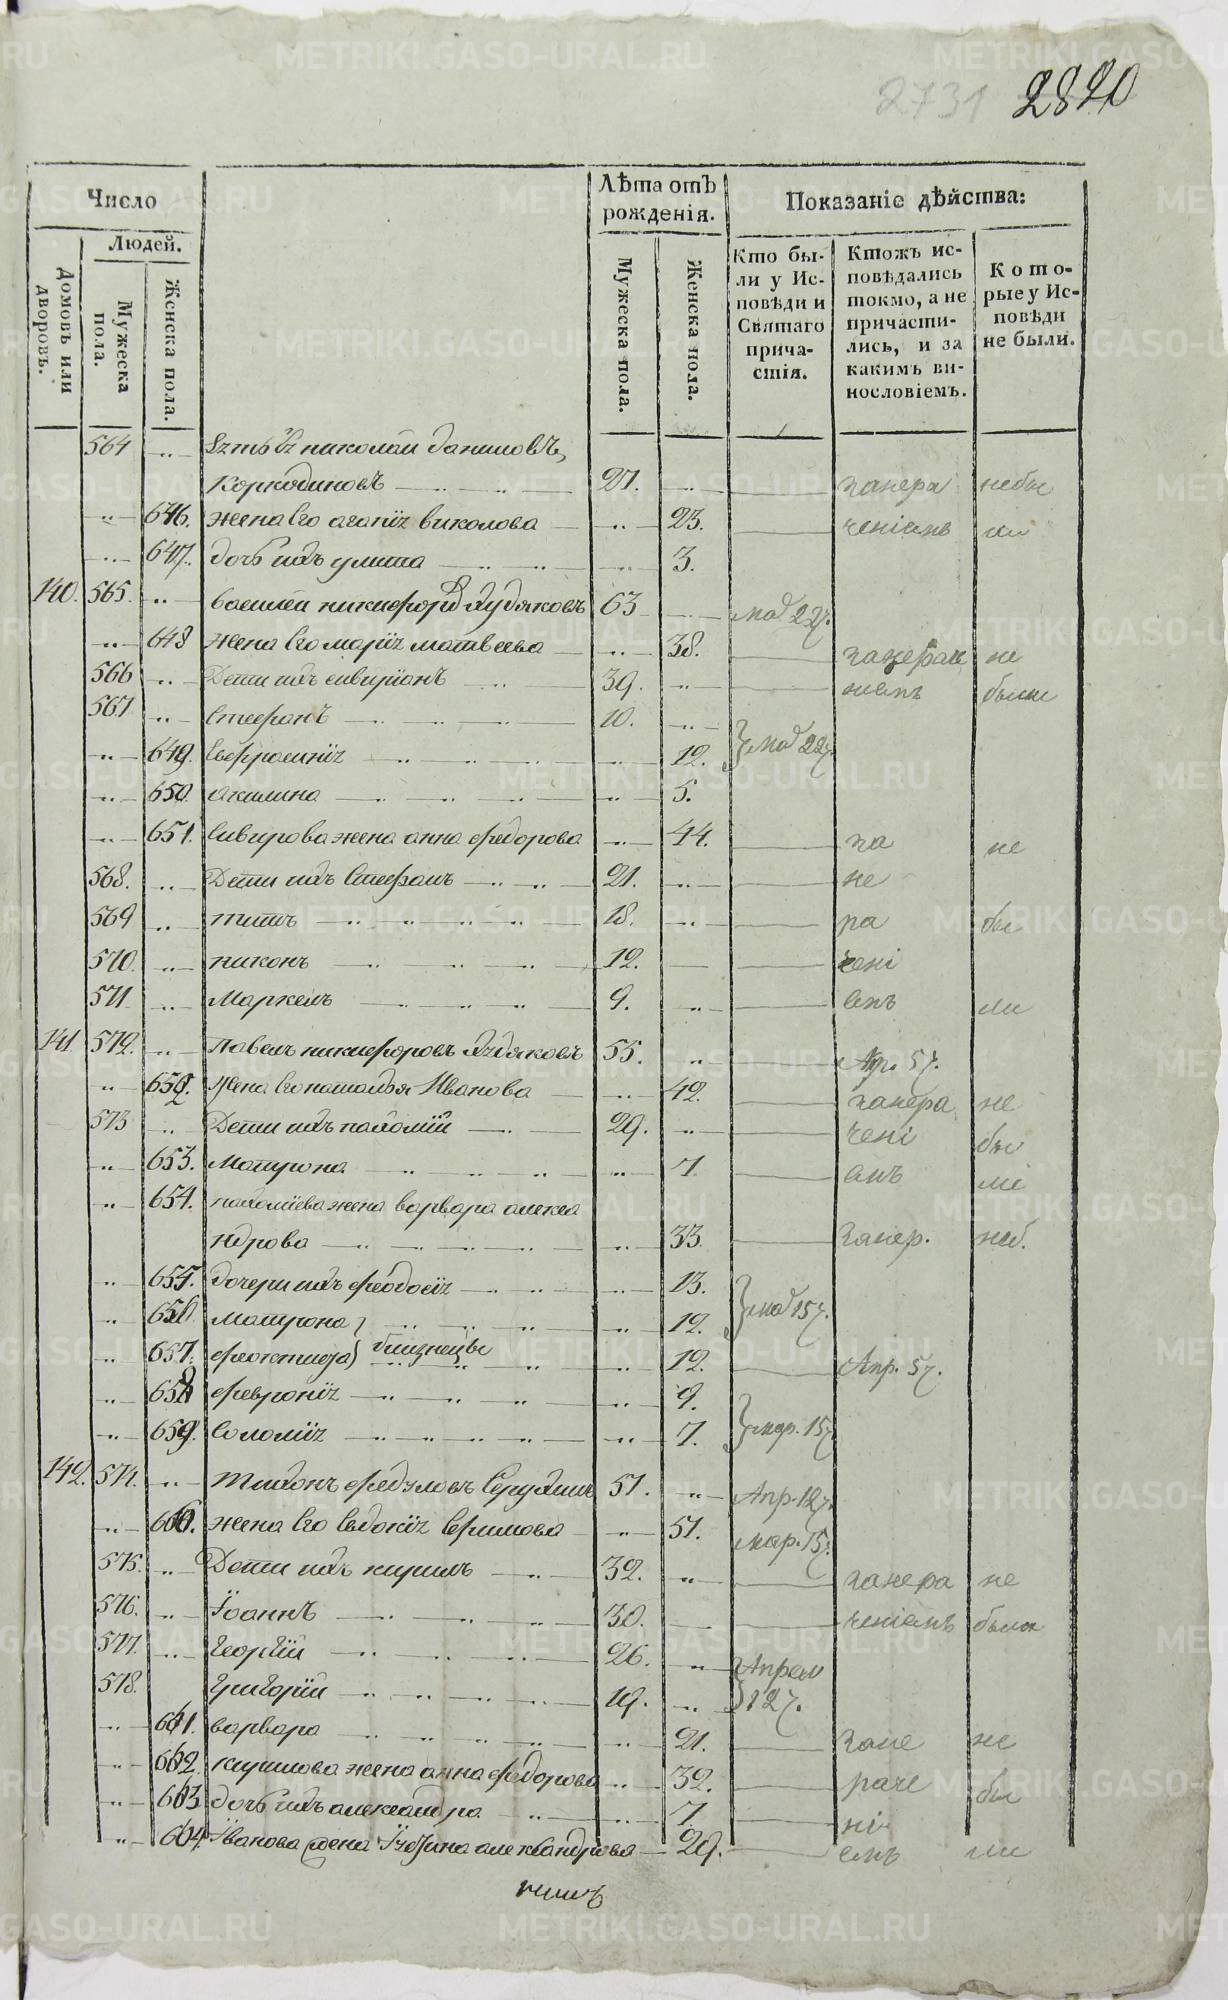 2731 2820
Число
Лѣта отъ рожденія.
Показаніе дѣйства:
Людей.
Домовъ или дворовъ.
Мужеска пола.
Женска пола.
Мужеска пола.
Женска пола.
Кто были у Исповѣди и Святаго причастія.
Ктожъ исповѣдались токмо, а не причастились, и за какимъ винословіемъ.
Которые у Исповѣди не были.
564 николай даниловъ
Коркодиновъ 27. занера небы
646. жена Его агапія 23. ченіемъ ли
647. дочь ихъ улита 3.
140. 565. василей никифоровъ Худяковъ 63 мар 22
648 жена Его марія матвеева 38. занерач не
566 Дети ихъ 39. ніемъ были
567 Стефанъ 10.
649. Евфросинія 12. мар 22
650. Акилина 5.
651. жена анна федорова 44. за не
568. Дети ихъ Стефанъ 21. не
569 титъ 18. ра бы
570. никонъ 12. чені
571 Маркелъ 9. емъ ли
141 572. Павелъ никифоровъ Худяковъ 55. Апр. 5
652. жена Его наталья Иванова 42. занера не
573 Дети ихъ пахомій 29. чені бы
653. Матрона 7 емъ ли
654. пахоміева жена варвара алекса
ндрова 33 занер. неб.
655. дочери ихъ феодосія 13.
656 матрона 12. мар 15
657. феоктиста близнецы 12. Апр. 5
658 февронія 9.
659. Соломія 7. мар. 15
142. 574. тихонъ федуловъ 51. Апр. 12
660. жена Его Евдокія 51. мар. 15
575. Дети ихъ кирилъ 32. занера не
576. Іоаннъ 30. ченіемъ были
577. Георгій 26. Апреля
578. Григорій 19. 12
661. варвара 21. зане не
662. кирилова жена анна федорова 32. раче бы
663 дочь ихъ александра 7 ні
664. Іванова жена александрова 29. емъ ли